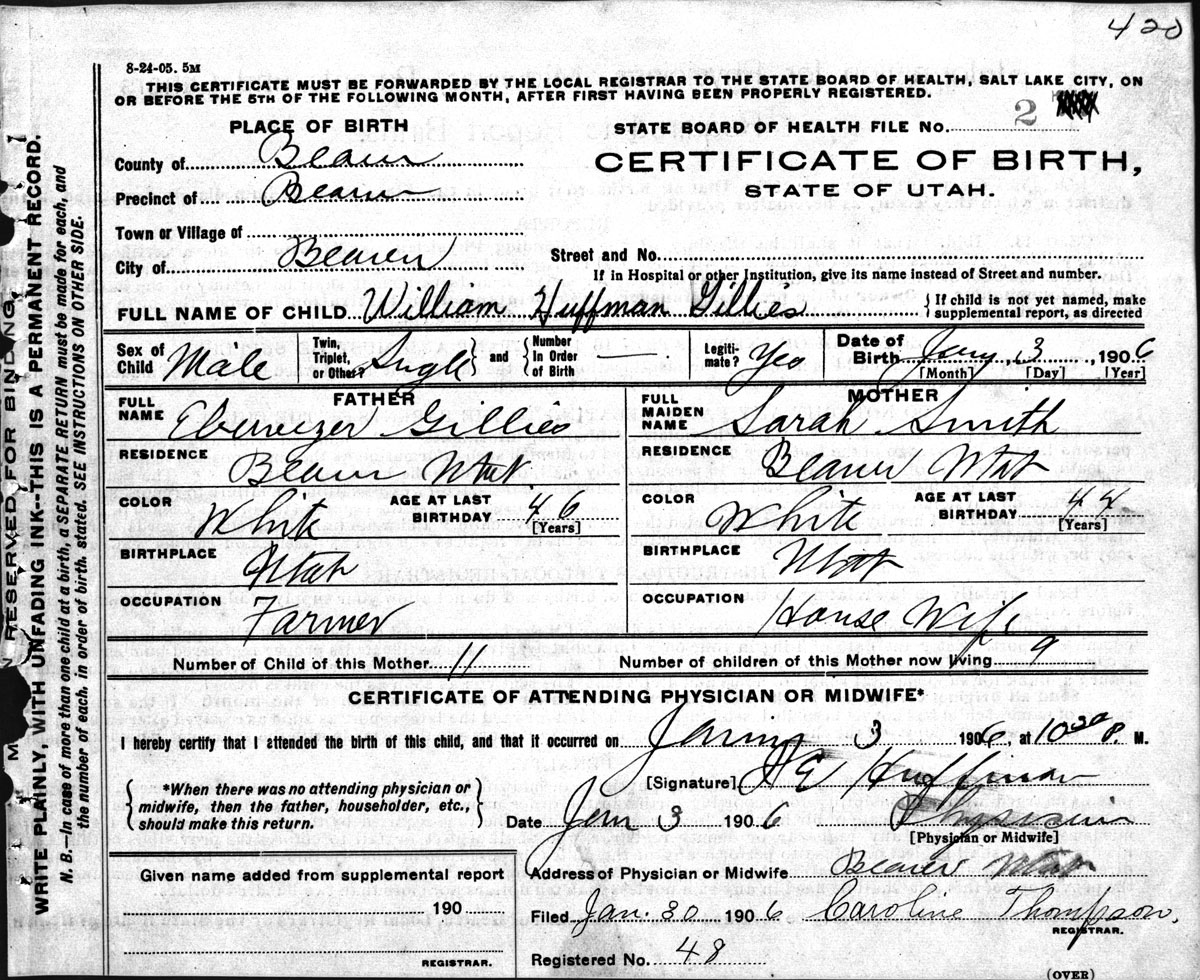 420
8-24-05. 5M
THIS CERTIFICATE MUST BE FORWARDED BY THE LOCAL REGISTRAR TO THE STATE BOARD OF HEALTH, SALT LAKE CITY, ON
OR BEFORE THE 5TH OF THE FOLLOWING MONTH, AFTER FIRST HAVING BEEN PROPERLY REGISTERED.
PLACE OF BIRTH
STATE BOARD OF HEALTH FILE No. 2
County of Beaver
CERTIFICATE OF BIRTH,
Precinct of Beaver
STATE OF UTAH.
Town or Village of
City of Beaver
Street and No.
If in Hospital or other Institution, give its name instead of Street and number.
FULL NAME OF CHILD William Huffman Gillies {If child is not yet named, make supplemental report, as directed
Sex of Child Male Twin, Triplet, or Other? Single and {Number In Order of Birth — Legiti-mate? Yes Date of Birth Jany 3, 1906
[Month] [Day] [Year]
FATHER
MOTHER
FULL NAME Ebenezer Gillies
FULL MAIDEN NAME Sarah Smith
RESIDENCE Beaver Utah
RESIDENCE Beaver Utah
COLOR White AGE AT LAST BIRTHDAY 46 [Years]
COLOR White AGE AT LAST BIRTHDAY 44 [Years]
BIRTHPLACE Utah
BIRTHPLACE Utah
OCCUPATION Farmer
OCCUPATION House Wife
Number of Child of this Mother 11 Number of children of this Mother now living 9
CERTIFICATE OF ATTENDING PHYSICIAN OR MIDWIFE*
I hereby certify that I attended the birth of this child, and that it occurred on 3 1906, at 10 30 P. M.
{*When there was no attending physician or
midwife, then the father, householder, etc.,
should make this return.}
[Signature] Huffman
Date Jan 3 1906 Physician
[Physician or Midwife]
Given name added from supplemental report
190
REGISTRAR.
Address of Physician or Midwife Beaver Utah
Filed Jan. 30 1906 Caroline Thompson,
REGISTRAR.
Registered No. 48
(OVER)
RESERVED FOR BINDING.
WRITE PLAINLY, WITH UNFADING INK--THIS IS A PERMANENT RECORD.
N. B.—In case of more than one child at a birth, a SEPARATE RETURN must be made for each, and
the number of each, in order of birth, stated. SEE INSTRUCTIONS ON OTHER SIDE.